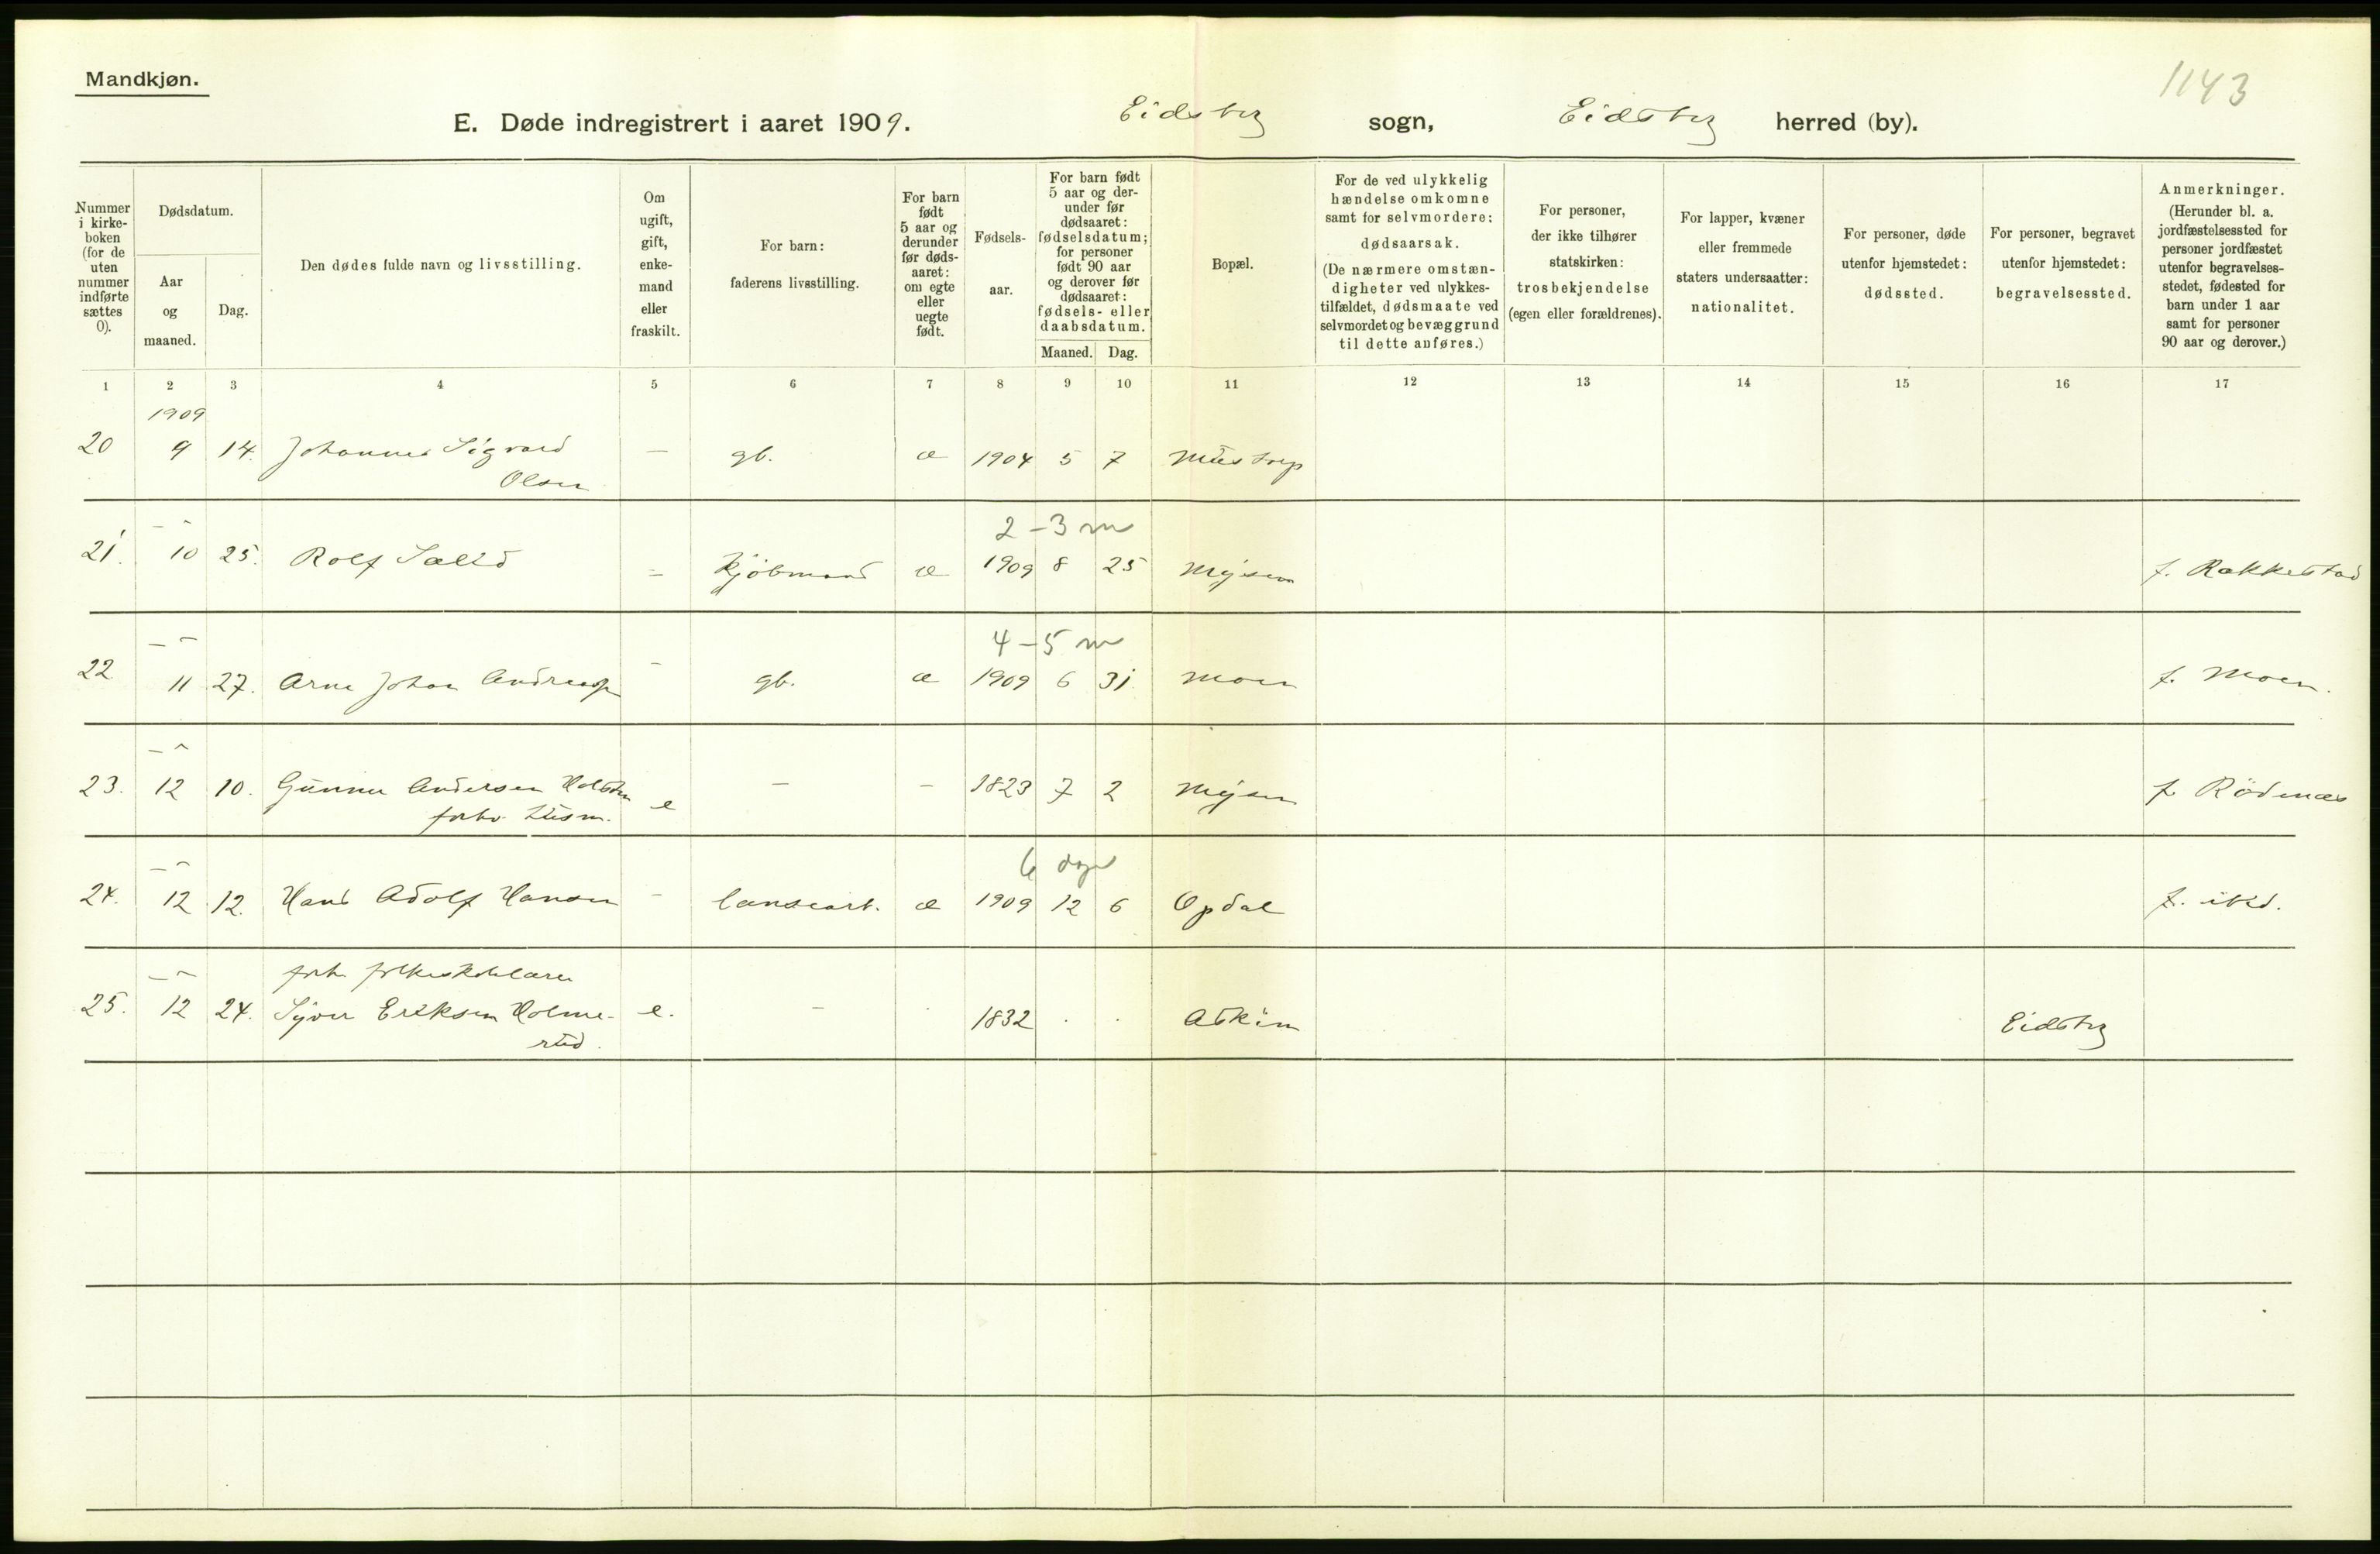 Mandkjøn.
1143
E. Døde indregistrert i aaret 1909. Eidsbg sogn, Eidsbg herred (by).
Nummer i kirke-boken (for de uten nummer indførte sættes 0).
Dødsdatum.
Aar og maaned.
Dag.
Den dødes fulde navn og livsstilling.
Om ugift, gift, enke-mand eller fraskilt.
For barn: faderens livsstilling.
For barn født 5 aar og derunder før døds-aaret: om egte eller uegte født.
Fødsels-aar.
For barn født 5 aar og der-under før dødsaaret: fødselsdatum; for personer født 90 aar og derover før dødsaaret: fødsels- eller daabsdatum.
Maaned. Dag.
Bopæl.
For de ved ulykkelig hændelse omkomne samt for selvmordere: dødsaarsak. (De nærmere omstæn-digheter ved ulykkes-tilfældet, dødsmaate ved selvmordet og bevæggrund til dette anføres.)
For personer, der ikke tilhører statskirken: trosbekjendelse (egen eller forældrenes).
For lapper, kvæner eller fremmede staters undersaatter: nationalitet.
For personer, døde utenfor hjemstedet: dødssted.
For personer, begravet utenfor hjemstedet: begravelsessted.
Anmerkninger. (Herunder bl. a. jordfæstelsessted for personer jordfæstet utenfor begravelses-stedet, fødested for barn under 1 aar samt for personer 90 aar og derover.)
1 2 3 4 5 6 7 8 9 10 11 12 13 14 15 16 17
1909
20 9 14. Johannes Sigvard — gb. æ 1904 5 7
Olsen
— " 2 – 3 m
21. 10 25. Rolf — Kjöbmand æ 1909 8 25 Mysen f. Rakkestad
— " 4 – 5 m
22 11 27. Arne Johan Andreas — gb. æ 1909 6 31 Moen f. Moen.
— "
23. 12 10. Gunner Andersen Holsten e — — 1823 7 2 Mysen f. Rödenæs
forhv. husm.
— " 6 dage
24. 12 12. Hans Adolf Hansen — æ 1909 12 6 Opdal f. ibid.
— " forh. folkeskolelærer
25. 12 24. Syver Eriksen Holme- e. — 1832 Askim Eidsbg
rud.